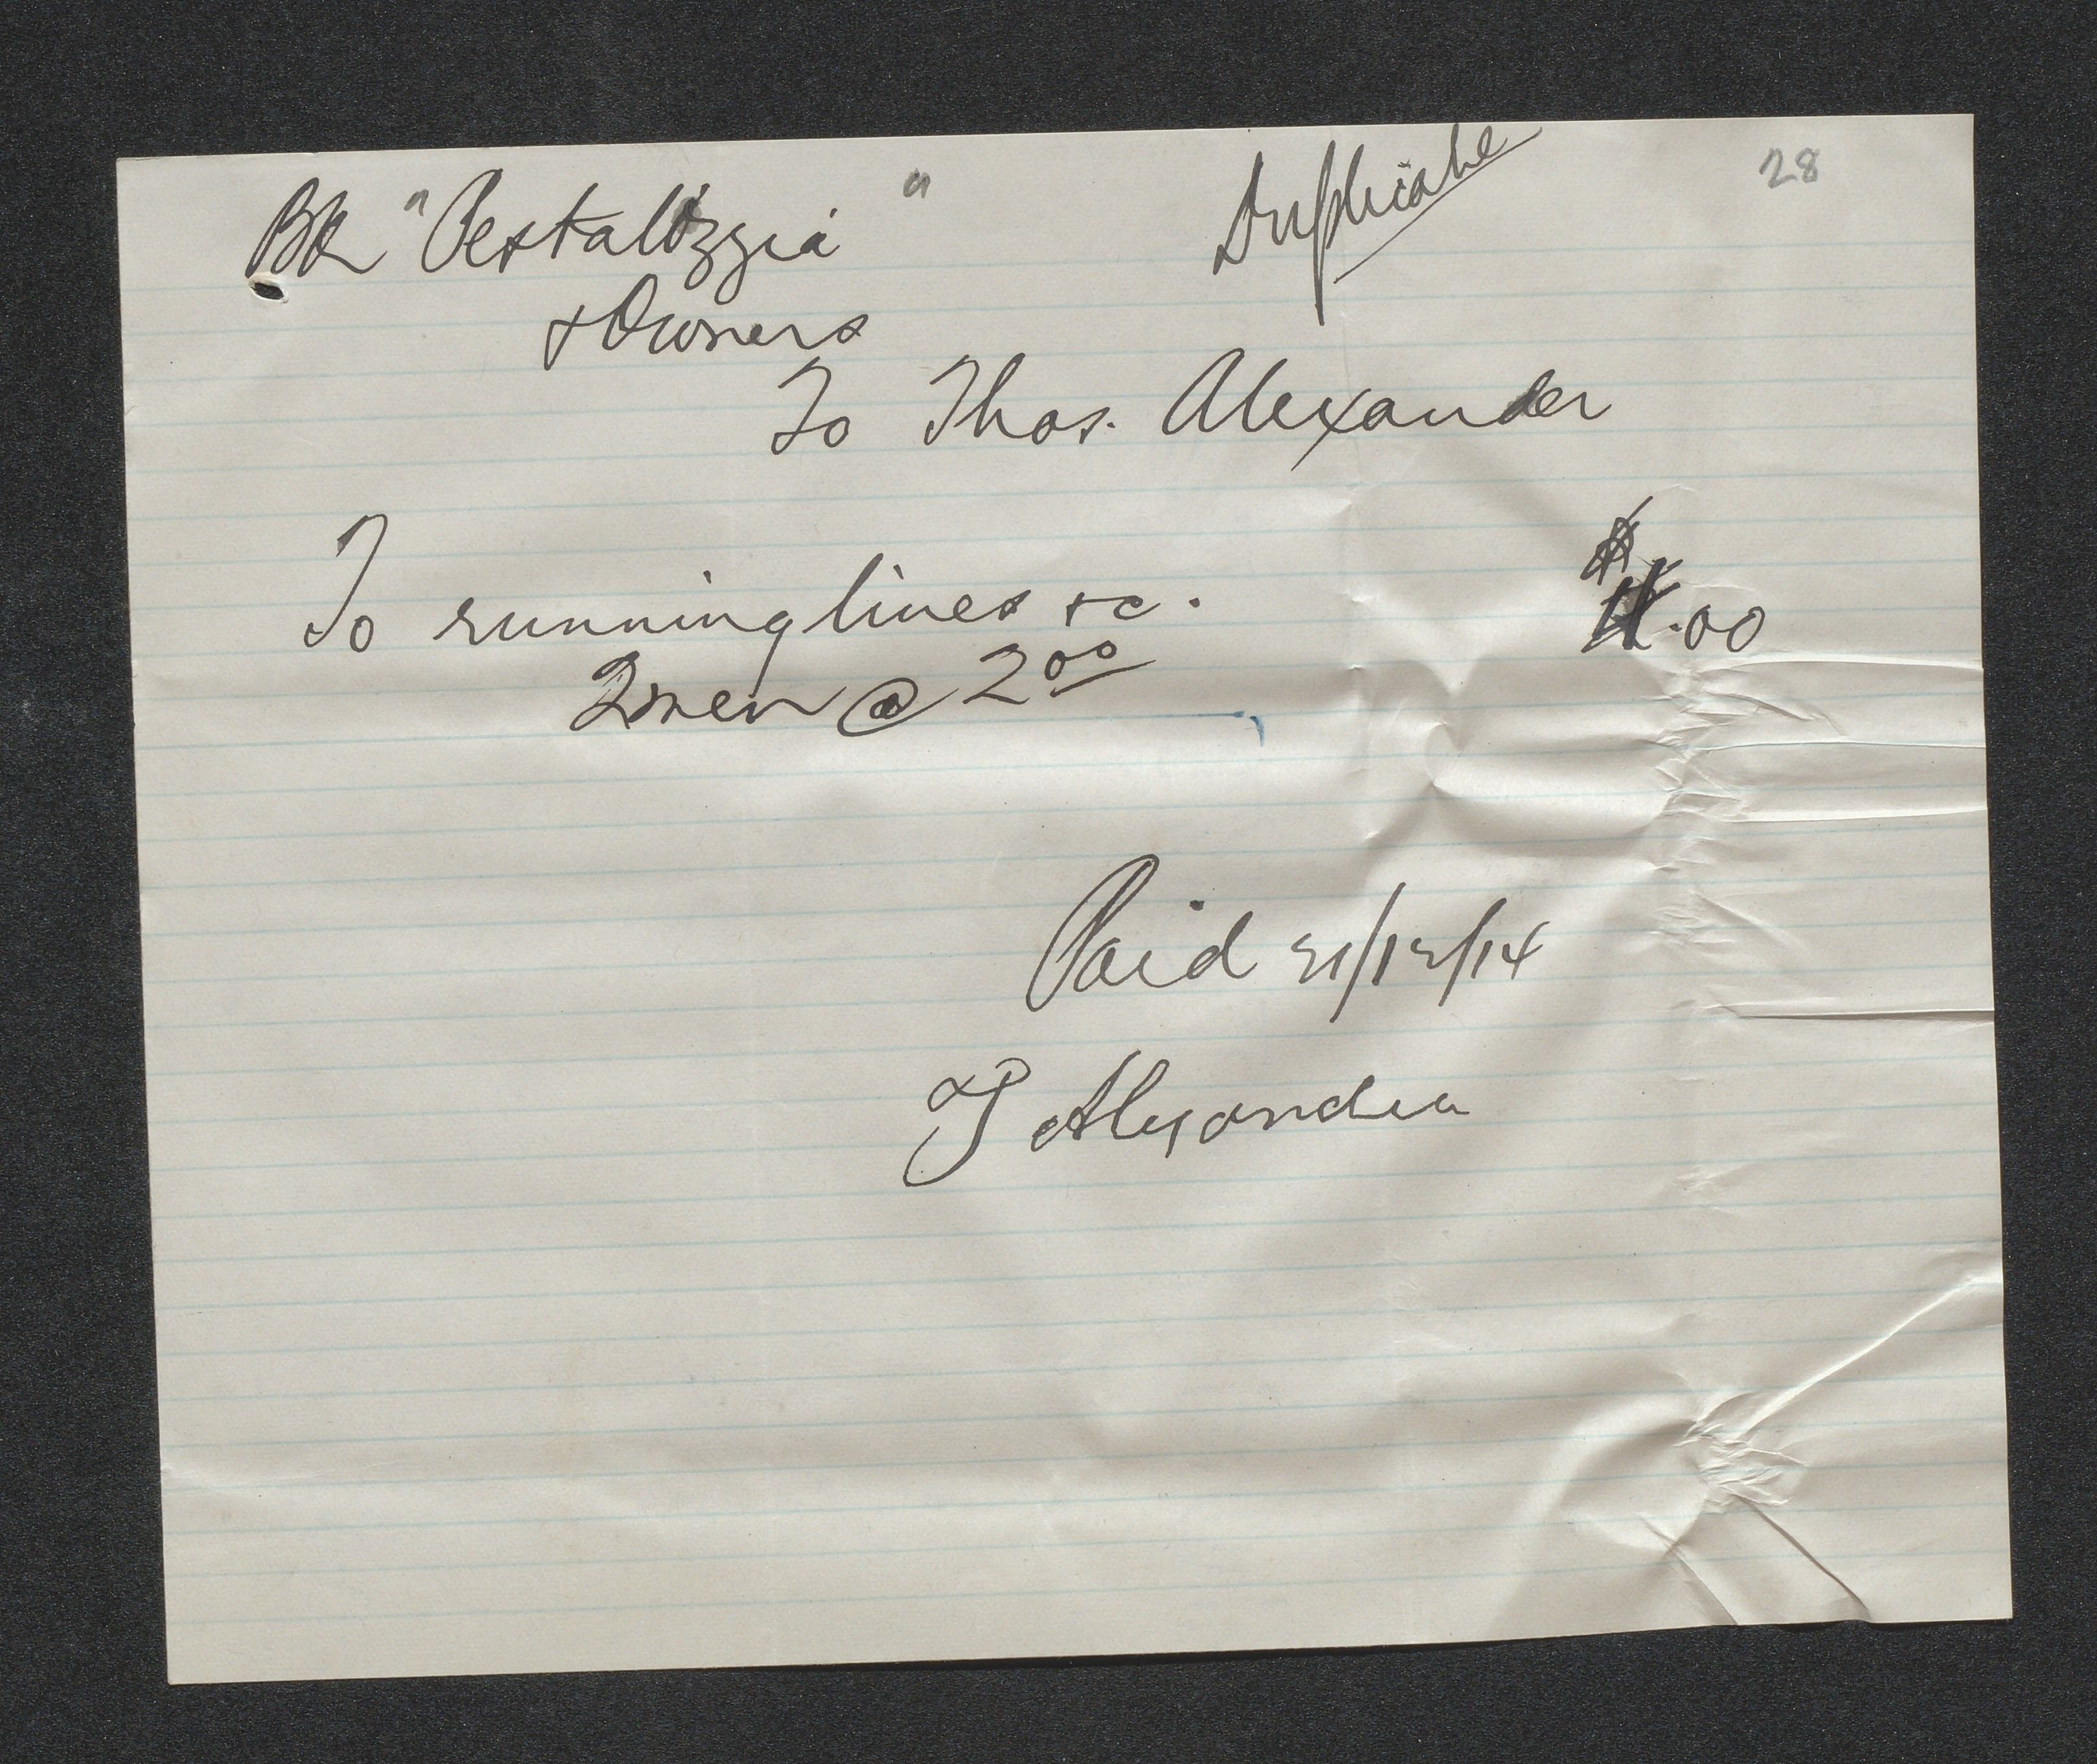 BK "Pestalozzia"
Duplicate
28
+ Owners
To Thos. Alexander
To running lines +c.
$4.00
2 men @ 2 00
Paid 31/12/14
T Alexander